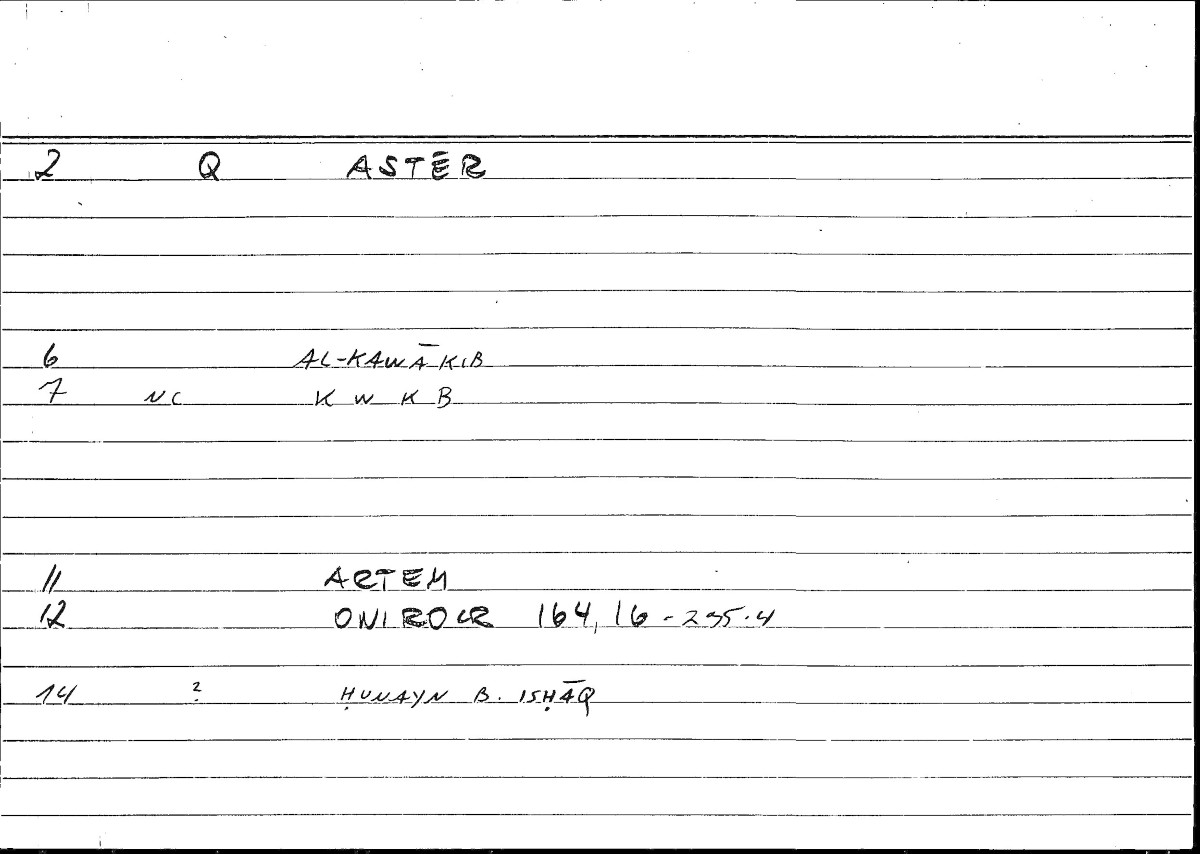 2 Q ASTĒR
6 AL-KAWĀKIB
7 NC K W K B
11 ARTEM
12 ONIROCR 164, 16 - 295.4
14 ? ḤUNAYN B. ISḤĀQ